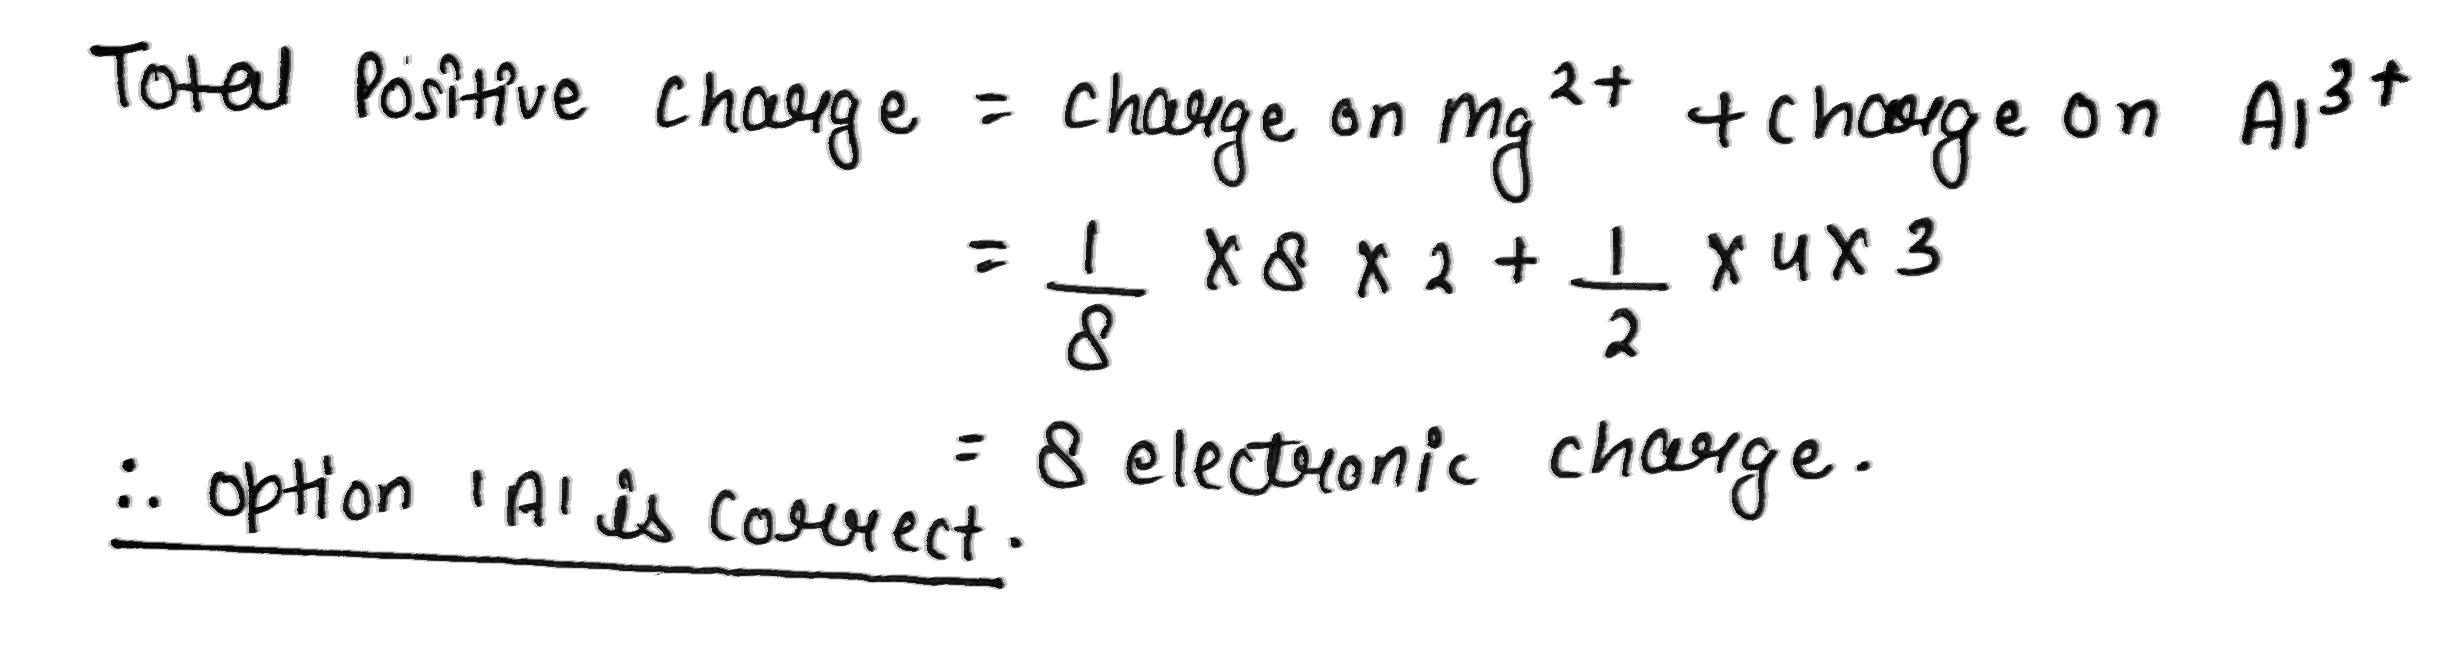 Total Positive charge = charge on mg²⁺ + charge on Al³⁺
= 1/8 × 8 × 2 + 1/2 × 4 × 3
= 8 electronic charge.
∴ option 'A' is correct.